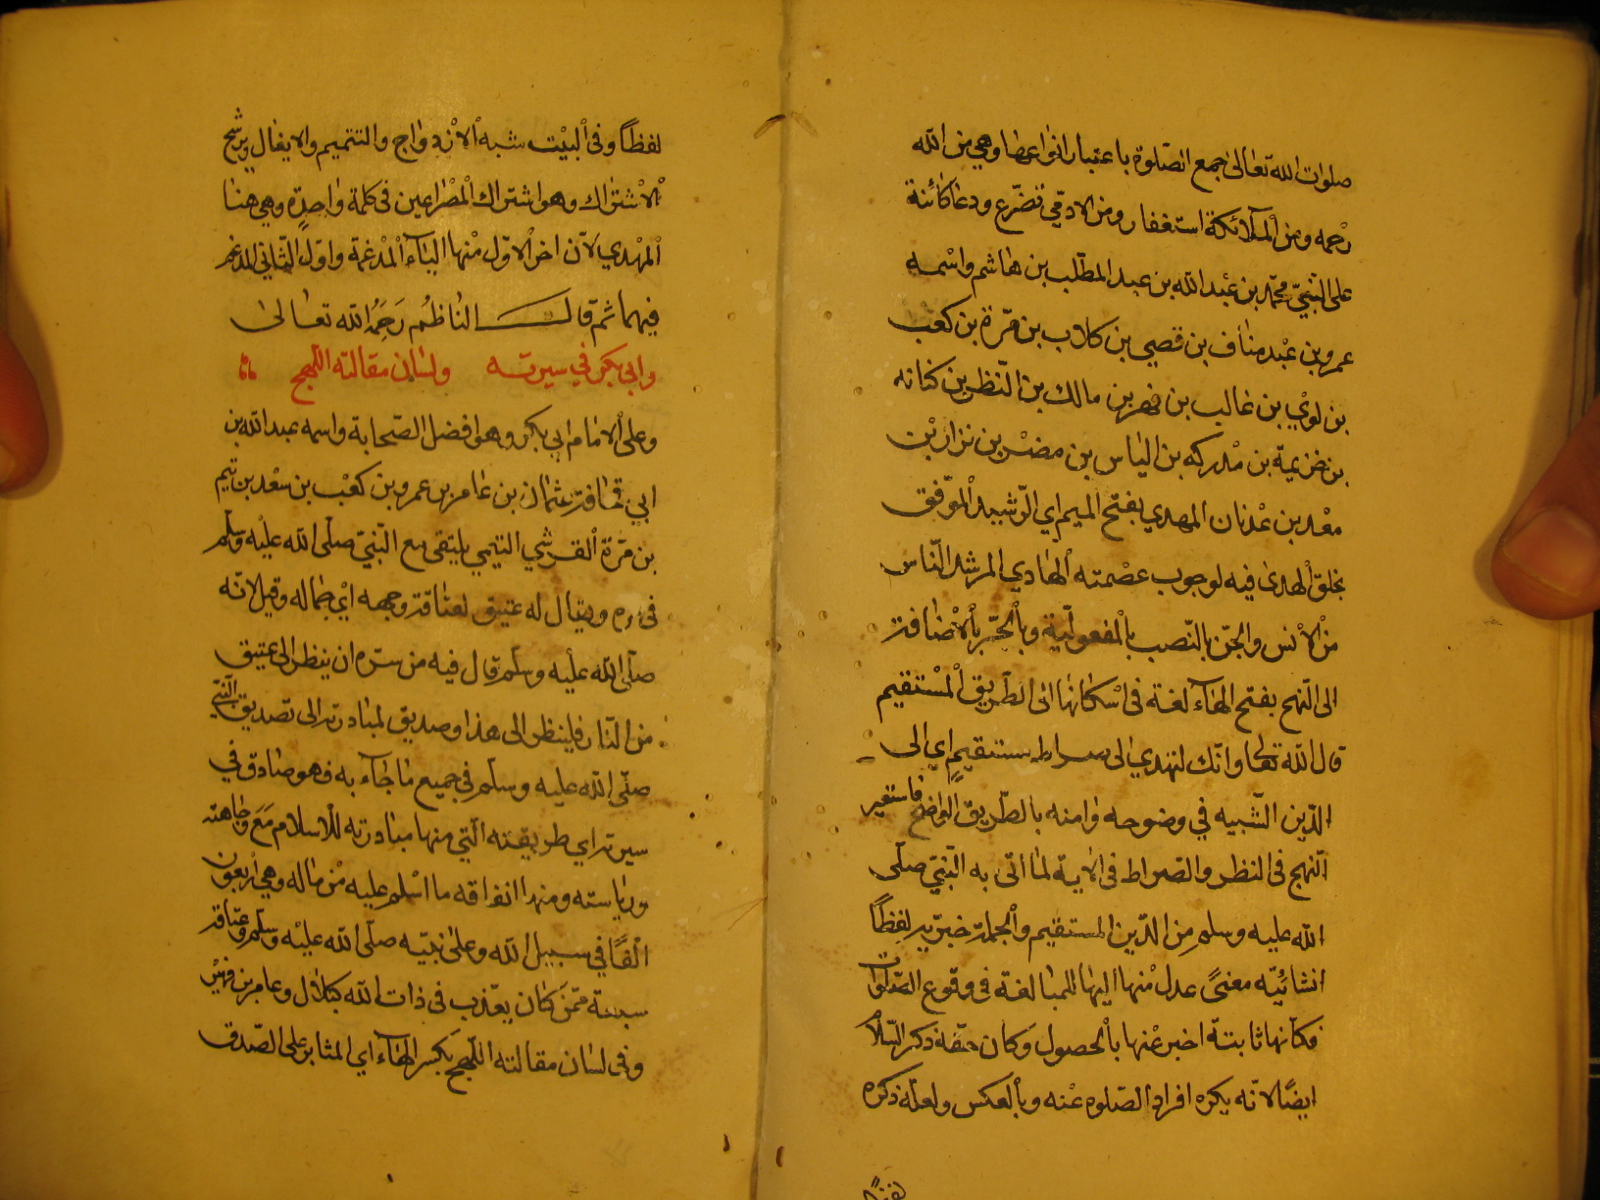 صلوات الله تعالى جمع الصّلوة باعتبار انواعها وهي من الله
رحمه ومن الملآئكة استغفار ومن الادمي تضرّع ودعا كائنة
على النّبيّ محمّد بن عبد الله بن عبد المطّلب بن هاشم واسمه
عمرو بن عبد مناف بن قصي بن كلاب بن مرّة بن كعب
بن لوي بن غالب بن فهر بن مالك بن النّظر بن كنانه
بن خزيمة بن مدركه بن الياس بن مضر بن نزار بن
معد بن عدنان المهدي بفتح الميم اي الرّشيد الموّفق
بخلق الهدى فيه لوجوب عصمته الهادي المرشد النّاس
من الانس والجنّ بالنّصب بالمفعوليّة وبالجّر بالاضافة
الى النّهج بفتح الهآء لغة في اسكانها اى الطّريق المستقيم
قال الله تعالى وانّك لتهدي الى صراط مستقيم اي الى
الدّين الشّبيه في وضوحه وامنه بالطّريق الواضح فاستعير
النّهج في النظر والصّراط في الاية لما اتى به النّبيّ صلّى
الله عليه وسلم من الدّين المستقيم والجملة خبريّة لفظًا
انشائيّه معنىً عدل منها اليها للمبالغة في وقوع الصّلوات
فكأنها ثابتة اخبر عنها بالحصول وكان حقّه ذكر السّلام
ايضًا لانّه يكره افراد الصّلوه عنه وبالعكس ولعلّه ذكره
لفظًا
لفظًا وفي البيت شبه الازدواج والتتميم والايغال ويرشح
الاشتراك وهو اشتراك المصراعين في كلمة واحدة وهي هنا
المهدي لانّ اخر الاوّل منها اليآء المدغمة واوّل الثّاني المدغم
فيها ثم قال النّاظم رَحَمَهُ الله تعالى
وابي بكر في سيرته ولسان مقالته اللّهج
وعلى الامام ابي بكر وهو افضل الصّحابة واسمه عبد الله بن
ابي قحافة عثمان بن عامر بن عمرو بن كعب بن سعد بن تيم
بن مرّة القرشي التيمي يلتقي مع النّبيّ صلّى الله عليه وسلّم
في مره ويقال له عتيق لعتاقة وجهه اي جماله وقيل لانّه
صلّى الله عليه وسلّم قال فيه من سرّه ان ينظر الى عتيق
من النّار فلينظر الى هذا وصديق لمبادرته الى تصديق النّبيّ
صلّى الله عليه وسلّم في جميع ما جآء به فهو صادق في
سيرته اي طريقته الّتي منها مبادرته للاسلام مَعَ وجاهته
ورياسته ومنها انفاقه ما اسلم عليه من ماله وهي اربعون
الفًا في سبيل الله وعلى نبيّه صلّى الله عليه وسلّم وعتاقة
سبعة ممّن كان يعّذب في ذات الله كبلال وعامر بن فهير
وفي لسان مقالته اللّهج بكسر الهآء اي المثابر على الصّدق